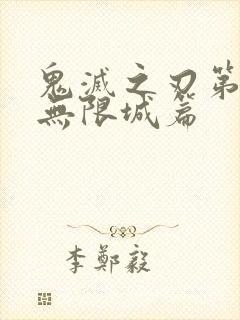 鬼滅之刃第
無限城篇
李鄭毅